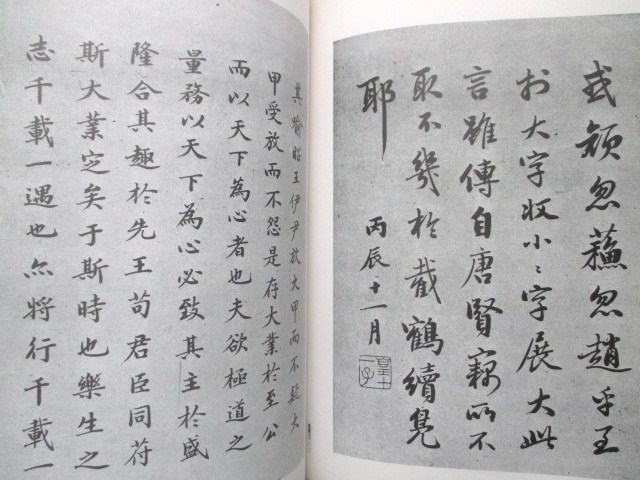 或顔忽蘓忽趙乎至
扵大字收小〻字展大此
言雖傳自唐賢竊所不
取不幾於截鶴續鳧
耶
丙辰十一月
其喻昭王伊尹放大甲而不疑大
甲受放而不怨是存大業於至公
而以天下為心者也夫欲極道之
量務以天下為心必致其主於盛
隆合其趣於先王苟君臣同苻
斯大業定矣于斯時也樂生之
志千載一遇也亦将行千載一